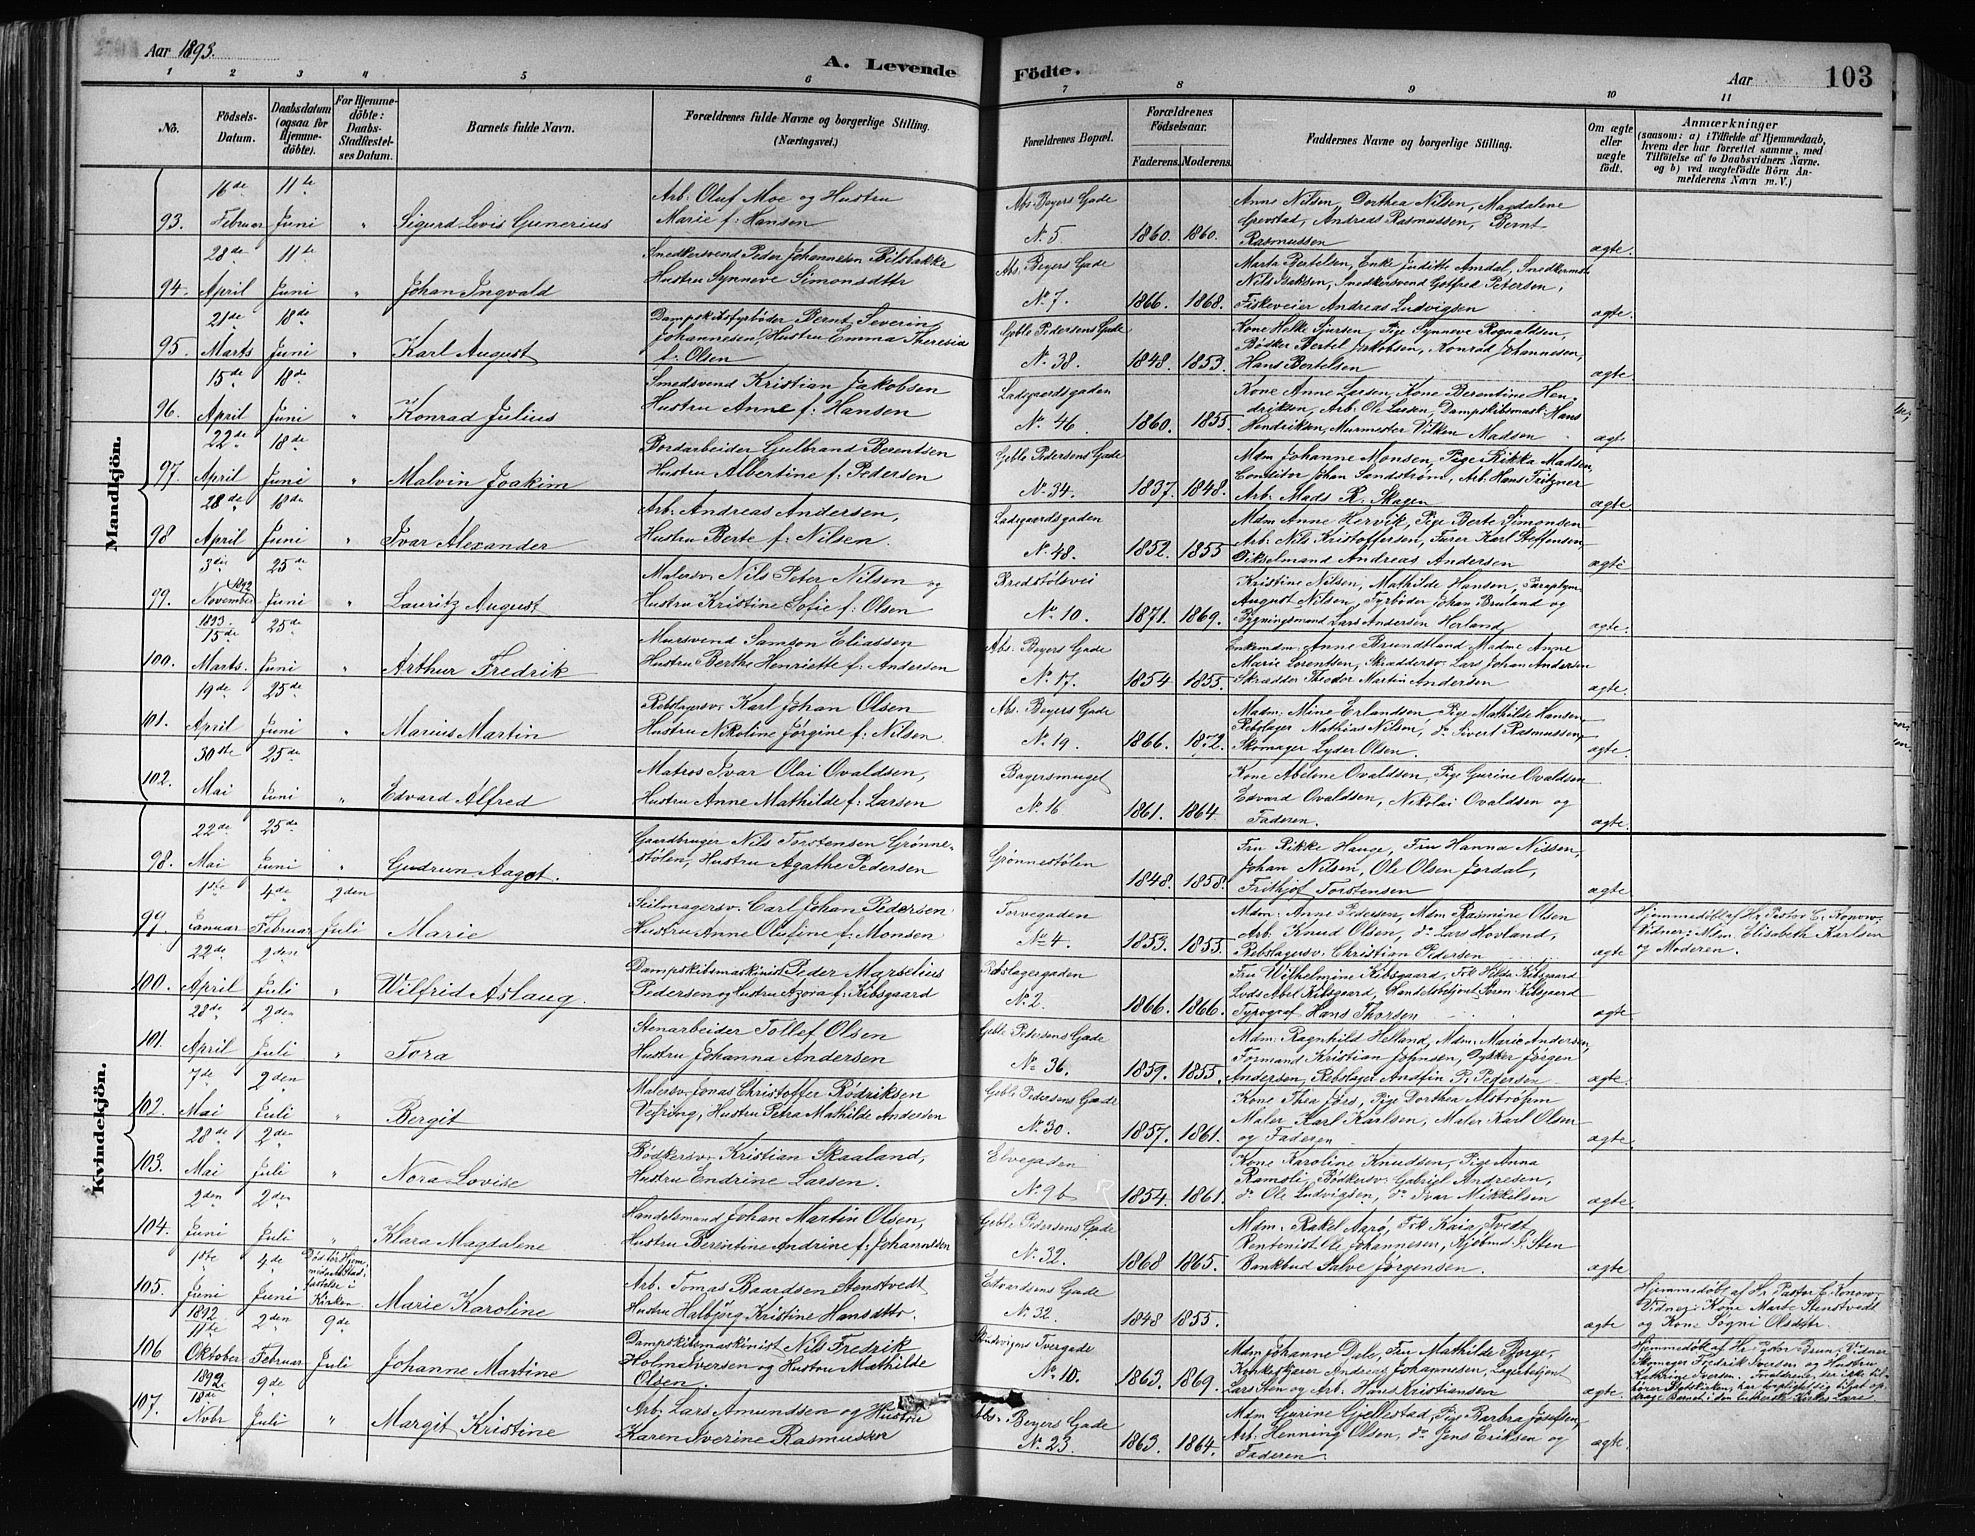 Aar 1893.
A. Levende Födte.
Aar 103
1 2 3 4 5 6 7 8 9 10 11
No. Födsels-Datum. Daabsdatum (ogsaa for Hjemmedöbte). For Hjemmedöbte: Daabs-Stadfæstelses Datum. Barnets fulde Navn. Forældrenes fulde Navne og borgerlige Stilling. (Næringsvei.) Forældrenes Bopæl. Forældrenes Födselsaar. Faderens. Moderens. Faddernes Navne og borgerlige Stilling. Om ægte eller uægte födt. Anmærkninger (saasom: a) i Tilfælde af Hjemmedaab, hvem der har forrettet samme, med Tilföielse af to Daabsvidners Navne. og b) ved uægtefödte Börn Anmelderens Navn m. V.)
Mandkjön.
16de 11te Arb: Oluf Moe og Hustru Abs. Beyers Gade Anne Nilsen, Dorthea Nilsen, Magdalene
93. Februar Juni " Sigurd Levis Gunerius Marie f: Hansen No 5. 1860. 1860. Grevstad, Andreas Rasmussen, Bernt
Rasmussen ægte.
28de 11te Snedkersvend Peder Johannesen Bilstakke Abs. Beyers Gade Marta Bertelsen, Enke Juditte Amdal, Snedkermstr
94. April Juni " Johan Ingvald Hustru Synneve Simonsdttr No 7. 1866. 1868. Nils Isaksen, Snedkersvend Gotfred Petersen,
Fiskeveier Andreas Ludvigsen ægte.
21de 18de Dampskibsfyrbøder Bernt Severin Geble Pedersens Gade Kone Helke Sjursen, Pige Synneve Rognaldsen,
95. Marts Juni " Karl August Johannesen, Hustru Emma Theresia No 38. 1848. 1853. Bødker Bertel Jakobsen, Konrad Johannesen,
f: Olsen Hans Bertelsen ægte.
15de 18de Smedsvend Kristian Jakobsen Ladegaardsgaden Kone Anne Larsen, Kone Berentine Hen-
96. April Juni " Konrad Julius Hustru Anne f: Hansen No 46. 1860. 1855. driksen, Arb: Ole Larsen, Dampskibsmask: Hans
Hendriksen, Murmester Vilken Madsen ægte
22de 18de Bordarbeider Gulbrand Berentsen Geble Pedersens Gade Mdm Johanne Monsen, Pige Rikka Madsen,
97. April Juni " Malvin Joakim Hustru Albertine f: Pedersen No 34. 1837. 1848. Conditor Johan Sandstrøm, Arb: Hans Fritzner
Arb: Mads R. Skagen ægte
28de 18de Arb: Andreas Andersen, Ladegaardsgaden Mdm Anne Hervik, Pige Berte Simonsen
98 April Juni " Ivar Alexander Hustru Berte f: Nilsen. No 48. 1852. 1855 Arb: Nils Kristoffersen, Furer Karl Steffensen,
Dikselmand Andreas Andersen ægte
3die 25de Malersv: Nils Peter Nilsen og Bredstølsvei Kristine Nilsen, Mathilde Hansen, Paraplym.
99. November 1892 Juni " Lauritz August Hustru Kristine Sofie f: Olsen No 10. 1871. 1869. August Nilsen, Fyrbøder Johan Bruland og
Bygningsmand Lars Andersen Herland ægte.
1893. 15de 25de Mursvend Samson Eliassen Abs. Beyers Gade Enkemdm: Anne Brundtland Madme Anne
100. Marts. Juni " Arthur Fredrik Hustru Berthe Henriette f: Andersen No 17. 1854 1855. Marie Lorentsen, Skræddersv. Lars Johan Andersen
Skrædder Theodor Martin Andersen ægte.
19de 25de Rebslagersv: Karl Johan Olsen Abs. Beyers Gade Madm: Mine Erlandsen, Pige Mathilde Hansen,
101. April Juni " Marius Martin Hustru Nikoline Jørgine f: Nilsen No 19. 1866. 1872. Rebslager Mathias Nilsen, do Sivert Rasmussen,
Skomager Lyder Olsen. ægte.
30te 25de Matros Ivar Olai Ovaldsen, Bagersmuget Kone Abelone Ovaldsen, Pige Gurine Ovaldsen
102. Mai Juni " Edvard Alfred Hustru Anne Mathilde f: Larsen No 16 1861. 1864 Edvard Ovaldsen, Nikolai Ovaldsen og
Faderen. ægte.
Kvindekjön.
22de 25de Gaardbruger Nils Torstensen Grønne- Fru Rikke Hauge, Fru Hanna Nissen,
98. Mai Juni " Gudrun Aagot. stølen, Hustru Agathe Pedersen Grønnestølen 1848. 1858. Johan Nilsen, Ole Olsen Jordal,
Frithjof Torstensen ægte
1ste 4de 2den Seilmagersv. Carl Johan Pedersen Torvegaden Mdm: Anne Pedersen, Mdm Rasmine Olsen Hjemmedøbt af Hr. Pastor C. Konow.
99. Januar Februar Juli Marie Hustru Anne Olufine f: Monsen No 4. 1853. 1855. Arb. Knud Olsen, do Lars Hovland, Vidner: Mdm. Elisabeth Karlsen
Rebslagersv. Christian Pedersen ægte og Moderen.
22de 2den Dampskibsmaskinist Peder Marselius Rebslagergaden Fru Wilhelmine Kibsgaard, Frk Hilda Kibsgaard
100. April Juli " Wilfrid Aslaug. Pedersen og Hustru Azora f: Kibsgaard No 2. 1866. 1866. Lods Abel Kibsgaard, Handelsbetjent Søren Kibsgaard
Typograf Hans Thorsen ægte
28de 2den Stenarbeider Tollef Olsen Geble Pedersens Gade Mdm: Ragnhild Helland, Mdm: Marie Andersen,
101. April Juli " Tora Hustru Johanna Andersen No 36. 1859. 1855. Formand Kristian Johnsen, Dysker Jørgen
Andersen, Rebslager Andfin P. Pedersen ægte.
7de 2den Malersv: Jonas Christoffer Rødriksen Geble Pedersens Gade Kone Thea Jørs, Pige Dorthea Alstrøpm
102. Mai Juli " Bergit Vefring, Hustru Petra Mathilde Andersen No 30. 1857. 1861. Maler Karl Karlsen, Maler Karl Olsen
og Faderen ægte.
28de 2den Bødkersv: Kristian Skaaland, Elvegaden Kone Karoline Knudsen, Pige Anna
103. Mai Juli " Nora Lovise Hustru Endrine Larsen. No 9b 1854. 1861. Ramsli, Bødkersv: Gabriel Andresen,
do Ole Ludvigsen, do Ivar Mikkelsen ægte
2den 2den Handelsmand Johan Martin Olsen, Geble Pedersens Gade Mdm: Rakel Agrø, Frk Kaia Tvedt
104. Juni Juli " Klara Magdalene Hustru Berentine Andrine f: Johannesen No 32. 1868 1865. Rentenist Ole Johannesen, Kjøbmd P. Sten
Bankbud Salve Jørgensen. ægte
1ste 4de Død før Hjemmedaabs Stadfæstelse i Kirken Arb. Tomas Baardsen Stenstvedt Edvardsens Gade Hjemmedøbt af Hr Pastor C. Konow.
105. Juni Juni Marie Karoline Hustru Halbjørg Kristine Hansdttr. No 32. 1848 1855. Vidner: Kone Marte Stenstvedt
ægte og Kone Søgni Olsdttr.
1892 11te 2den 9de Dampskibsmaskinist Nils Fredrik Skudevigens Tvergade Mdm Johanne Dale, Fru Mathilde Borge, Hjemmedøbt af Hr. Pastor Brun. Vidner
106 Oktober Februar Juli Johanne Martine Holm Iversen og Hustru Mathilde No 10. 1863. 1869. Konkeskjører Andreas Johannesen, Lagerbetjent Skomager Fredrik Iversen og Hustru
Olsen. Lars Sten og Arb. Hans Kristiansen ægte. Kathrine Iversen. Forældrene, der ikke tilhører Statskirken, har forpligtet sig til at opdrage Barnet i den lutherske Kirkes Lære.
1892 18de 9de Arb. Lars Amundsen og Hustru Abs. Beyers Gade Mdm Gurine Gjellestad, Pige Barbra Josefsen,
107. Novbr Juli " Margit Kristine Karen Iverine Rasmussen No 23. 1863. 1864. Arb: Henning Olsen, do Jens Eriksen og
Faderen. ægte.